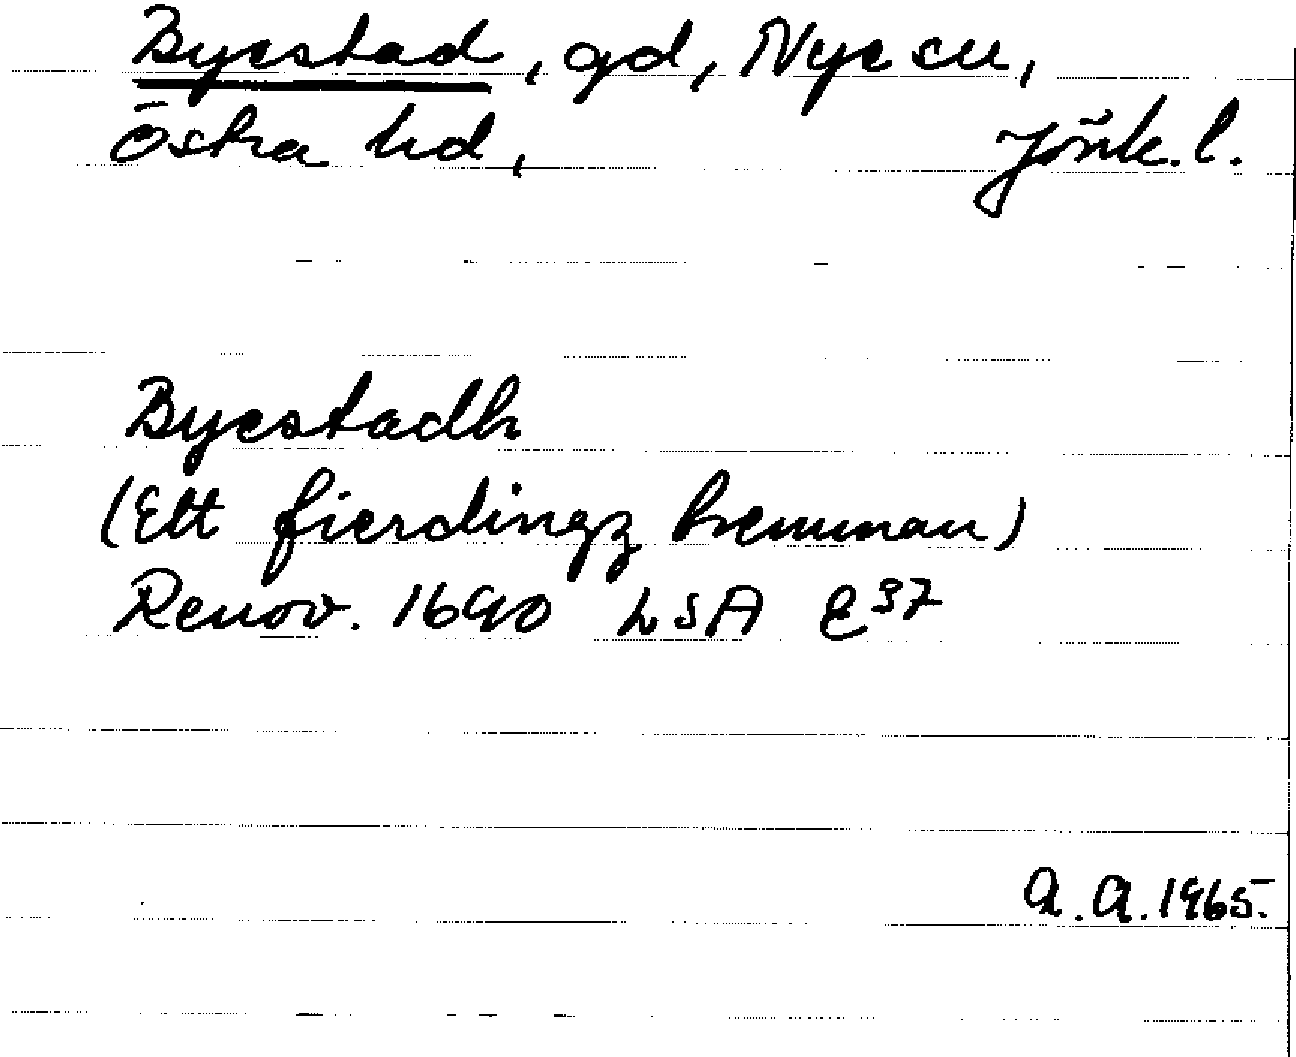 Byestad, gd, Nye sn,
Östra hd, Jönk. l.
Byestadh
(Ett fierdingz hemman)
Renov. 1690 LSA E37
A.A. 1965.